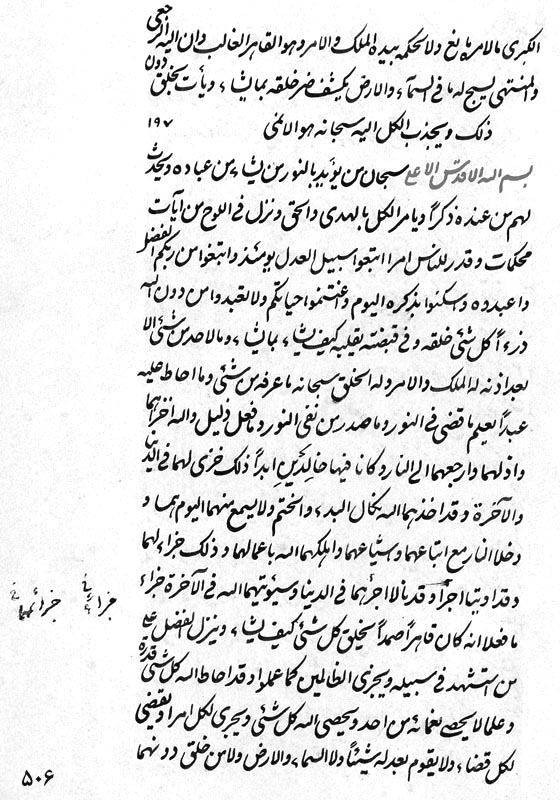 الكبرى مالامره مانع ولا لحكمه بيده الملك والامر وهو القاهر الغالب وان اليه الرجعى
والمنتهى يسبح له ما فى السمآء والارض يكشف ضر خلقه بما يشآء ويأت بخلق دون
ذلك ويجذب الكل اليه سبحانه هو الابهى
۱۹۷
بسم الله الاقدس الاعلى سبحان من يؤيد بالنور من يشآء من عباده ويحدث
لهم من عنده ذكراً ويامر الكل بالهدى والحق ونزل فى اللوح من آيات
محكمات وقدر للناس امرا اتبعوا سبيل العدل يومئذ وابتغوا من ربكم الفضل
واعبدوه وسكنوا بذكره اليوم واغتنموا حياتكم ولا تعبدوا من دون الله
ذرء كل شئ خلقه وفى قبضته يقلبه كيف يشآء بما يشآء ومالاحد من شئ الا
بعد اذنه له الملك والامر وله الخلق سبحانه ما عرفه من شئ وما احاط عليه
عبداً يعلم ما قضى فى النور وما صدر من نفى النور وما فعل ذليل والله اخزاهما
واذلهما وارجعهما الى النار وكانا فيها خالدين ابداً ذلك خزى لهما فى الدنيا
والآخرة وقد اخذهما الله نكال البدء والختم ولا يسمع منهما اليوم همسا و
دخلا النار مع اتباعهما وشياعهما واهلكهما الله باعمالهما وذلك جزاء لهما
وقد اوتيا اجراً وقد نالا اجرهما فى الدنيا وسيؤتيهما الله فى الآخرة جزاء
ما فعلا انه كان قاهراً صمداً يخلق كل شئ كيف يشآء وينزل الفضل على
من استشهد فى سبيله ويجزى الظالمين كما عملوا وقد احاط الله كل شئ قدرة
وعلما لا يحصى نعمائه من احد ويحصى الله كل شئ ويجرى لكل امرا ويقضى
لكل قضاء ولا يقوم بعدله شيئاً ولا السمآء والارض ولا من خلق دونهما
جزائى
جزائهما
۵۰۶